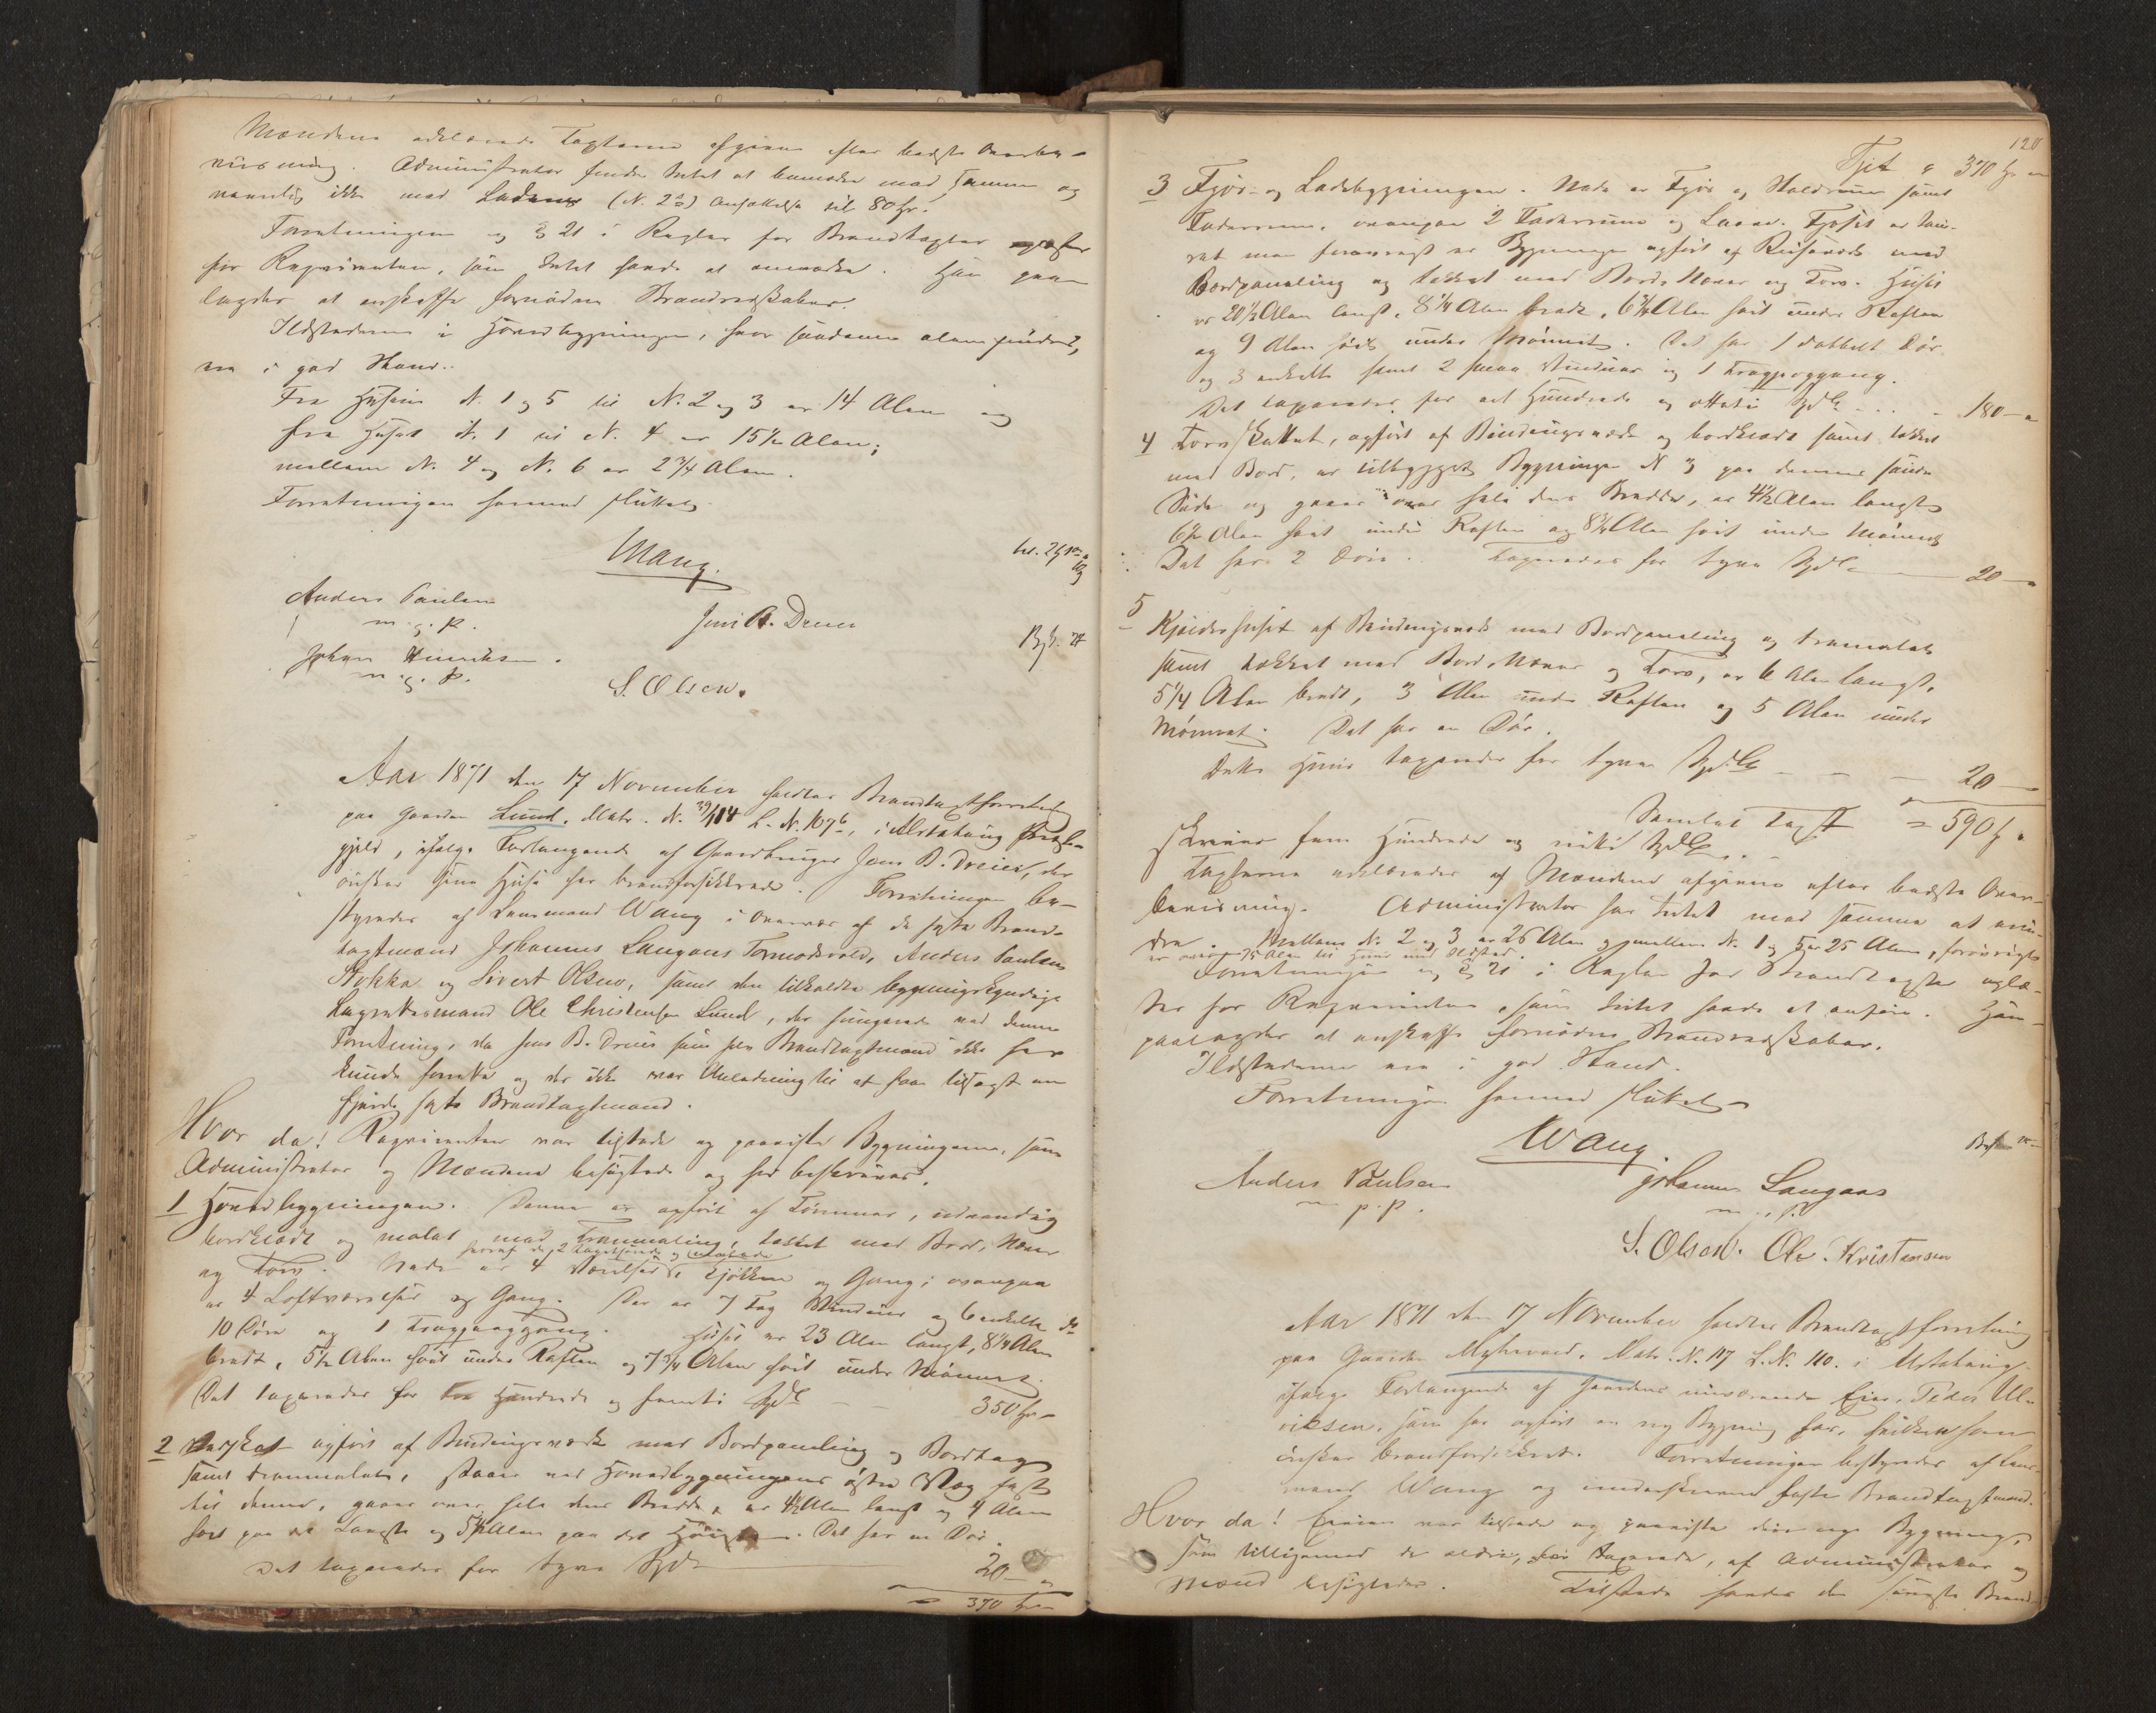 Mændene erklærede Taxterne afgivne efter bedste Overbe-
viisning. Administrator fandt Intet at bemærke med samme og
navnlig ikke med Ladens (N. 2 a) Ansættelse til 80 Spd.
Forretningen og § 21 i Regler for Brandtaxter oplæstes
for Reqvirenten, som Intet havde at anmærke. Han paa-
lagdes at anskaffe fornødne Brandredskaber.
Ildstederne i Hovedbygningen, hvor saadanne alene findes,
ere i god Stand.
Fra Husene N. 1 og 5 til N. 2 og 3 er 14 Alen og
fra Huset N. 1 til N. 4 er 15½ Alen;
mellem N. 4 og N. 6 er 2¾ Alen.
Forretningen hermed sluttet.
Wang.
Anders Paulsen
m. p. P.
Jens B. Dreier
Johan Hinriksen
m. p. P.
S. Olsen.
Aar 1871 den 17 November holdtes Brandtaxtforretning
paa Gaarden Lund, Matr. N. 39/114 L. N. 107 b, i Alstahaug Præste-
gjeld, ifølge Forlangende af Gaardbruger Jens B. Dreier, der
ønsker sine Huse her brandforsikkrede. Forretningen be-
styredes af Lensmand Wang i Overvær af de faste Brand-
taxtmænd Johannes Langaas Tormodsvold, Anders Paulsen
Stokka og Sivert Olsen, samt den tilkaldte bygningskyndige
Lagrettesmand Ole Christensen Lund, der fungerede ved denne
Forretning, da Jens B. Dreier som fast Brandtaxtmand ikke her
kunde forrette og der ikke var Anledning til at faae tilsagt en
fjerde fast Brandtaxtmand.
Hvor da! Reqvirenten var tilstede og paaviste Bygningerne, som
Administrator og Mændene besigtede og her beskrives.
1 Hovedbygningen. Denne er opført af Tømmer, udvendig
bordklædt og malet med Tranmaling, tækket med Bord, Næver
hvoraf de 2
og Torv. Nede er 4 Værelser, Kjøkken og Gang; ovenpaa
er 4 Loftværelser og Gang. Der er 7 Fag Vinduer og 6 enkelte do
10 Døre og 1 Trappeopgang. Huset er 23 Alen langt, 8¼ Alen
bredt, 5½ Alen høit under Raften og 7¾ Alen høit under Mønnet.
Det taxeredes for tre Hundrede og femti Spdl — 350 Spd
2 Vedskot opført af Bindingsværk med Bordpaneling og Bordtag
samt tranmalet, staaer ved Hovedbygningens østre Væg fast
til denne, gaaer over hele dens Bredde, er 4½ Alen langt og 4 Alen
høit paa det Laveste og 5½ Alen paa det Høieste. Det har en Dør.
Det taxeredes for tyve Spdl — 20 —
= 370 Spd
120
Tjet = 370 Spd
3 Fjøs- og Ladebygningen. Nede er Fjøs og Staldrum samt
Foderrum, ovenpaa 2 Foderrum og Lave. Fjøset er tøm-
ret men forøvrigt er Bygningen opført af Reisværk med
Bordpaneling og tækket med Bord, Næver og Torv. Huset
er 20½ Alen langt, 8¼ Alen bredt, 6¼ Alen høit under Raften
og 9 Alen høit under Mønnet. Det har 1 dobbelt Dør
og 3 enkelte samt 2 smaa Vinduer og 1 Trappeopgang.
Det taxeredes for et Hundrede og otteti Spdl . . . 180 —
4 Torvskottet, opført af Bindingsværk og bordklædt samt tækket
med Bord, er tilbygget Bygningen N 3 paa dennes søndre
Side og gaaer over hele dens Bredde, er 4½ Alen langt,
6½ Alen høit under Raften og 8¼ Alen høit under Mønnet.
Det har 2 Døre. Taxeredes for tyve Spdl — 20 —
5 Kjelderhuset af Bindingsværk med Bordpaneling og tranmalet
samt tækket med Bord, Næver og Torv, er 6 Alen langt,
5¼ Alen bredt, 3 Alen under Raften og 5 Alen under
Mønnet. Det har en Dør.
Dette Huus taxeredes for tyve Spdl — 20 —
Samlet Taxt = 590 Spd
skriver fem Hundrede og niti Spdl.
Taxterne erklæredes af Mændene afgivne efter bedste Over-
beviisning. Administrator har Intet mod samme at erin-
dre. Mellem N. 2 og 3 er 26 Alen og mellem N. 1 og 5 er 25 Alen, forøvrigt
er over 75 Alen til Huus med Ildsted.
Forretningen og § 21 i Regler for Brandtaxter oplæ-
stes for Reqvirenten, som Intet havde at anføre. Han
paalagdes at anskaffe fornødne Brandredskaber.
Ildstederne ere i god Stand.
Forretningen hermed sluttet
Wang
Anders Paulsen
m. p. P.
Johannes Langaas
m. p. P.
S. Olsen. Ole Kristensen
Aar 1871 den 17 November holdtes Brandtaxtforretning
paa Gaarden Myhrvold, Matr. N. 117 L. N. 110. i Alstahaug
ifølge Forlangende af Gaardens nuværende Eier, Peder Ul-
riksen, som har opført en ny Bygning her, hvilken han
ønsker brandforsikkret. Forretningen bestyredes af Lens-
mand Wang og underskrevne faste Brandtaxtmænd.
Hvor da! Eieren var tilstede og paaviste den nye Bygning,
som tilligemed de ældre, før taxerede, af Administrator og
Mænd besigtedes. Tilstede havdes den seneste Brand-